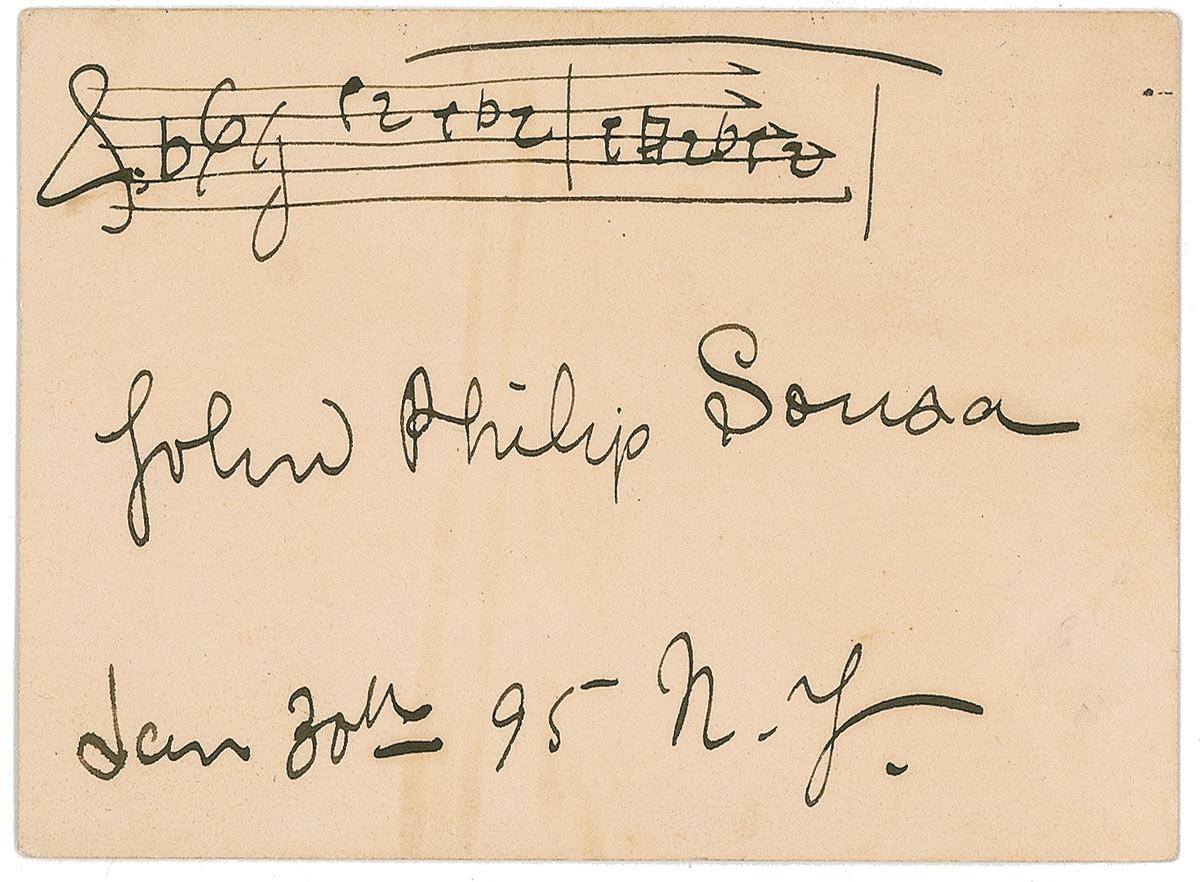 John Philip Sousa
Jan 30th 95 N.Y.